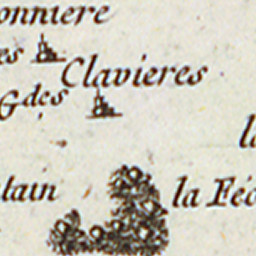 onniere
es
Clavieres
Gdes
la
lain
la Féc